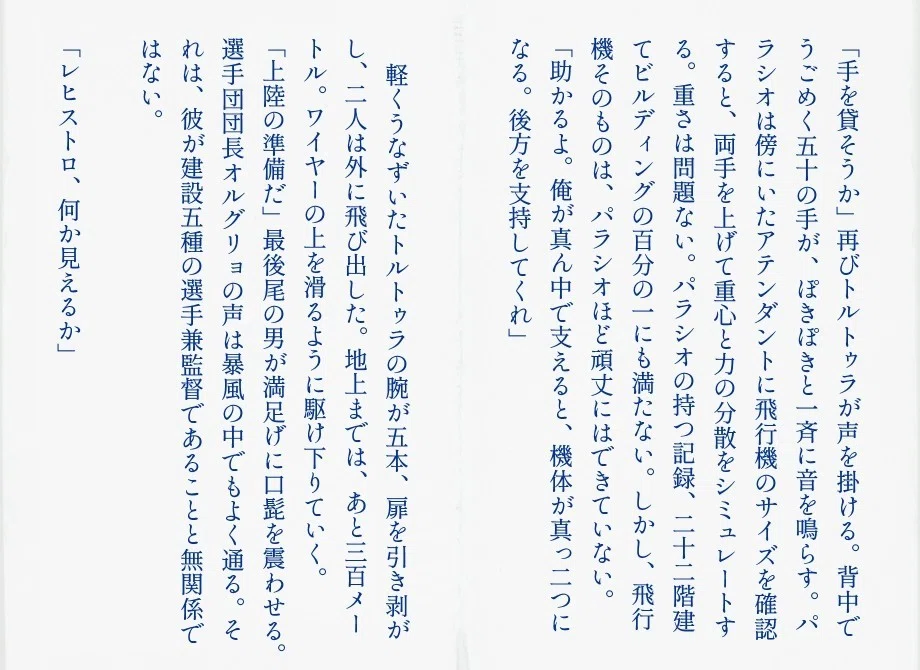 「手を貸そうか」再びトルトゥラが声を掛ける。背中で
うごめく五十の手が、ぽきぽきと一斉に音を鳴らす。パ
ラシオは傍にいたアテンダントに飛行機のサイズを確認
すると、両手を上げて重心と力の分散をシミュレートす
る。重さは問題ない。パラシオの持つ記録、二十二階建
てビルディングの百分の一にも満たない。しかし、飛行
機そのものは、パラシオほど頑丈にはできていない。
「助かるよ。俺が真ん中で支えると、機体が真っ二つに
なる。後方を支持してくれ」
軽くうなずいたトルトゥラの腕が五本、扉を引き剥が
し、二人は外に飛び出した。地上までは、あと三百メー
トル。ワイヤーの上を滑るように駆け下りていく。
「上陸の準備だ」最後尾の男が満足げに口髭を震わせる。
選手団団長オルグリョの声は暴風の中でもよく通る。そ
れは、彼が建設五種の選手兼監督であることと無関係で
はない。
「レヒストロ、何か見えるか」